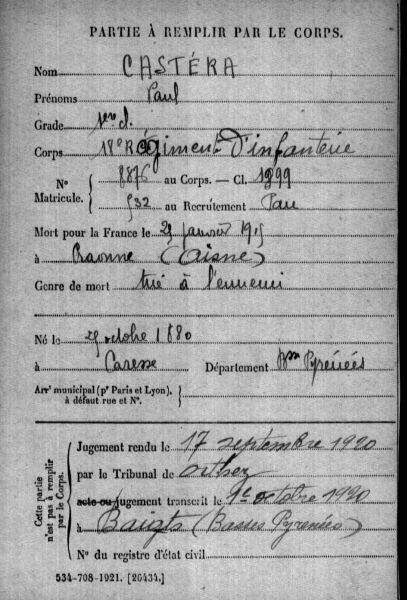 PARTIE À REMPLIR PAR LE CORPS.
Nom CASTÉRA
Prénoms Paul
Grade 1ere cl.
Corps 18e Régiment d'infanterie
N° Matricule. { 8876 au Corps. — Cl. 1899
532 au Recrutement Pau
Mort pour la France le 25 janvier 1915
à Craonne (Aisne)
Genre de mort tué à l'ennemi
Né le 29 octobre 1880
à Caresse Département Bses Pyrénées
Arrt municipal (pr Paris et Lyon),
à défaut rue et N°.
Cette partie n'est pas à remplir par le Corps.
Jugement rendu le 17 septembre 1920
par le Tribunal de Orthez
acte ou jugement transcrit le 1er octobre 1920
à Baigts (Basses Pyrénées)
N° du registre d'état civil
534-708-1921. [26434.]